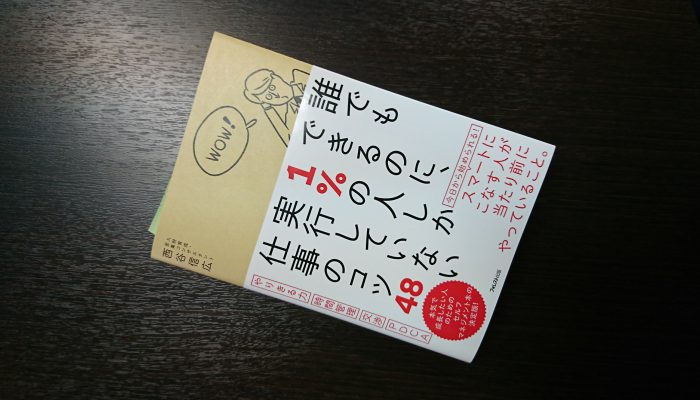 誰でも
できるのに、
1%の人しか
実行していない
仕事のコツ48
今日から始められる!
スマートに
こなす人が
当たり前に
やっていること。
WOW!
酉谷信広
やりきる力
時間管理
交渉
PDCA
本気で
成長したい人
のための
セルフ
マネジメント本の
決定版!